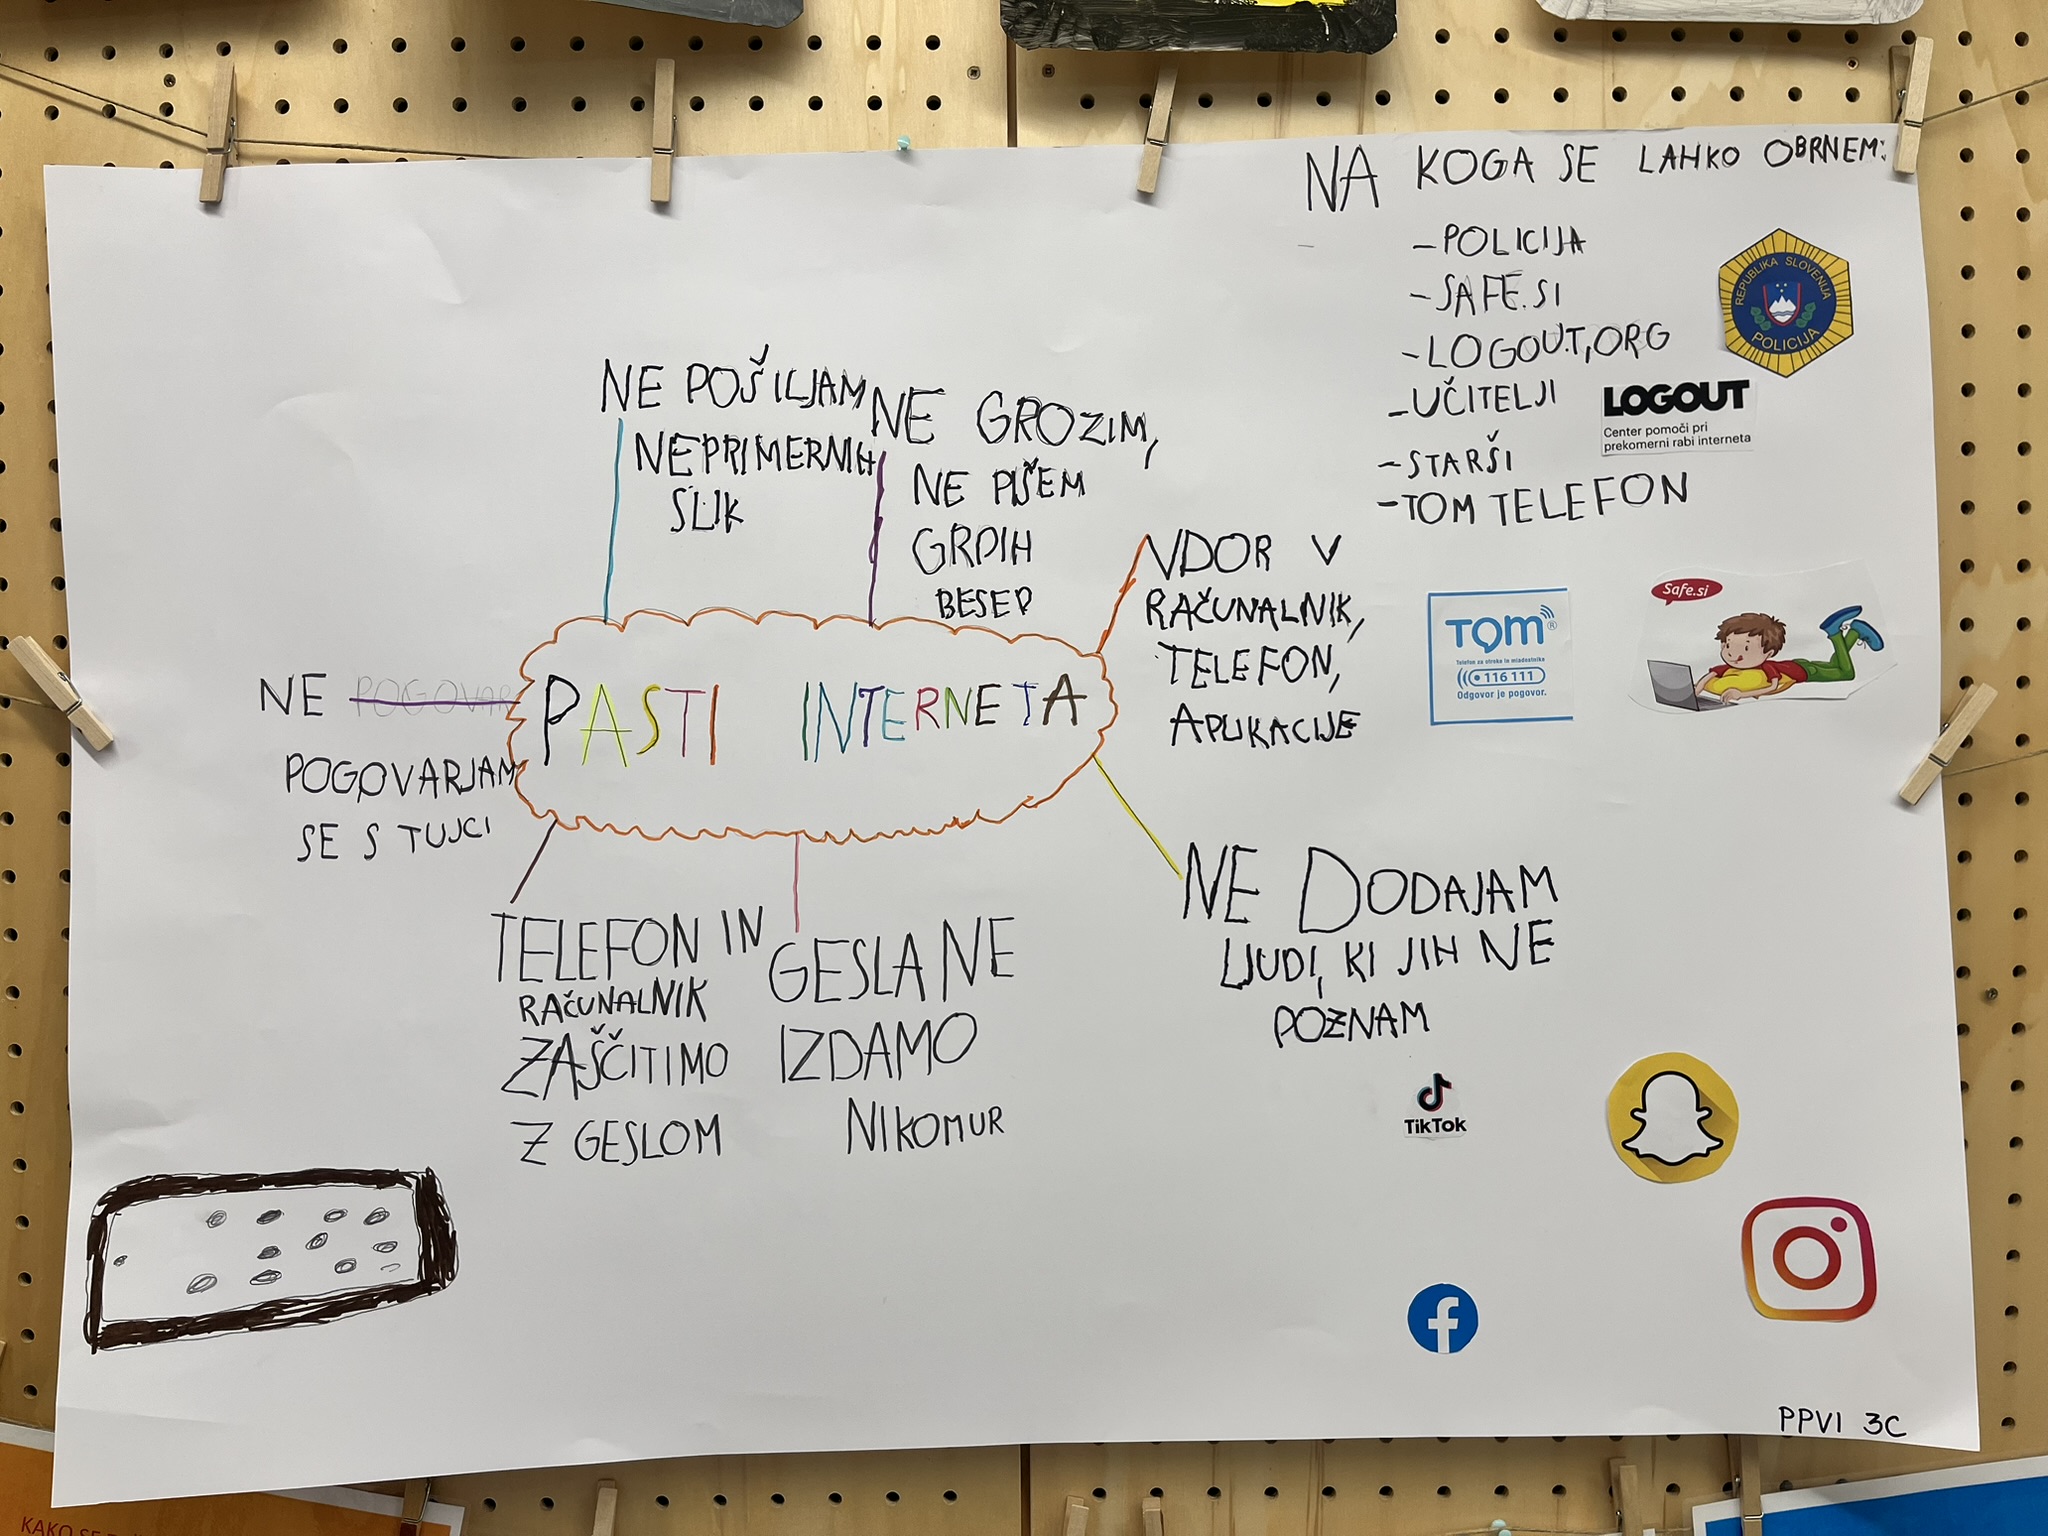 NA KOGA SE LAHKO OBRNEM:
- POLICIJA
- SAFE.SI
- LOGOUT,ORG
- UČITELJI
- STARŠI
- TOM TELEFON
REPUBLIKA SLOVENIJA
POLICIJA
LOGOUT
Center pomoči pri
prekomerni rabi interneta
TOM®
Telefon za otroke in mladostnike
116 111
Odgovor je pogovor.
Safe.si
NE POŠILJAM
NEPRIMERNIH
SLIK
NE GROZIM,
NE PIŠEM
GRDIH
BESED
VDOR V
RAČUNALNIK,
TELEFON,
APLIKACIJE
PASTI INTERNETA
NE POGOVAR
POGOVARJAM
SE S TUJCI
TELEFON IN
RAČUNALNIK
ZAŠČITIMO
Z GESLOM
GESLA NE
IZDAMO
NIKOMUR
NE DODAJAM
LJUDI, KI JIH NE
POZNAM
TikTok
PPVI 3C
KAKO SE